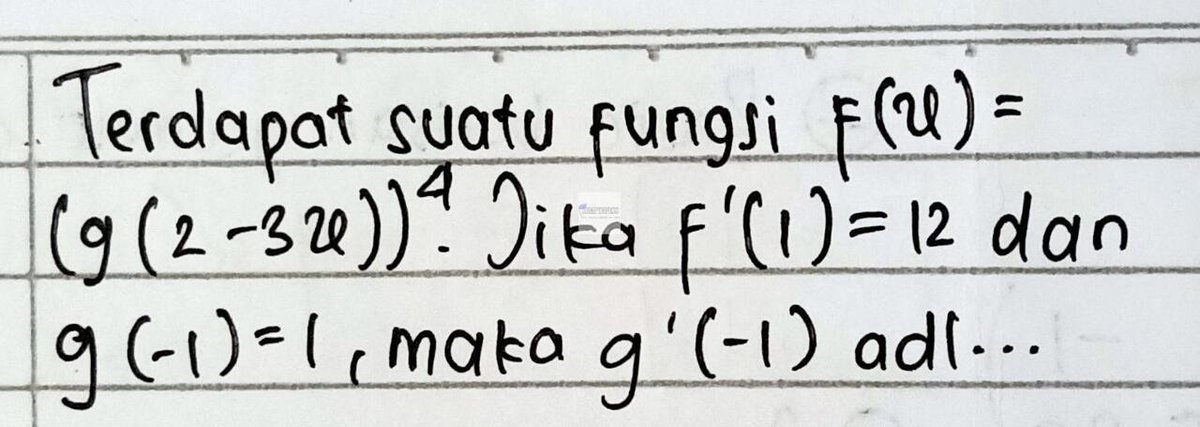 Terdapat suatu fungsi f(x) =
(g(2-3x))⁴. Jika f'(1) = 12 dan
g(-1) = 1, maka g'(-1) adl...